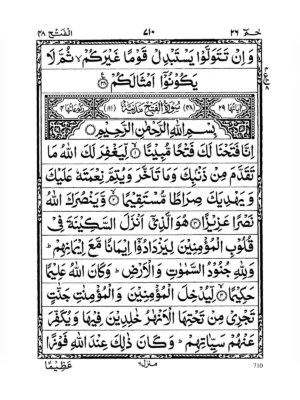 الفتح ٤٨ ٧١٠ حٰمٓ ٢٦
وَاِنْ تَتَوَلَّوْا يَسْتَبْدِلْ قَوْمًا غَيْرَكُمْ ۙ ثُمَّ لَا
يَكُوْنُوْٓا اَمْثَالَكُمْ ﴿٣٨﴾
اٰيَاتُهَا ٢٩ (٤٨) سُوْرَةُ الْفَتْحِ مَدَنِيَّةٌ (١١١) رُكُوْعَاتُهَا ٤
بِسْمِ اللّٰهِ الرَّحْمٰنِ الرَّحِيْمِ
اِنَّا فَتَحْنَا لَكَ فَتْحًا مُّبِيْنًا ﴿١﴾ لِّيَغْفِرَ لَكَ اللّٰهُ مَا
تَقَدَّمَ مِنْ ذَنْۢبِكَ وَمَا تَاَخَّرَ وَيُتِمَّ نِعْمَتَهٗ عَلَيْكَ
وَيَهْدِيَكَ صِرَاطًا مُّسْتَقِيْمًا ﴿٢﴾ وَّيَنْصُرَكَ اللّٰهُ
نَصْرًا عَزِيْزًا ﴿٣﴾ هُوَ الَّذِيْٓ اَنْزَلَ السَّكِيْنَةَ فِيْ
قُلُوْبِ الْمُؤْمِنِيْنَ لِيَزْدَادُوْٓا اِيْمَانًا مَّعَ اِيْمَانِهِمْ ؕ
وَلِلّٰهِ جُنُوْدُ السَّمٰوٰتِ وَالْاَرْضِ ؕ وَكَانَ اللّٰهُ عَلِيْمًا
حَكِيْمًا ﴿٤﴾ لِّيُدْخِلَ الْمُؤْمِنِيْنَ وَالْمُؤْمِنٰتِ جَنّٰتٍ
تَجْرِيْ مِنْ تَحْتِهَا الْاَنْهٰرُ خٰلِدِيْنَ فِيْهَا وَيُكَفِّرَ
عَنْهُمْ سَيِّاٰتِهِمْ ؕ وَكَانَ ذٰلِكَ عِنْدَ اللّٰهِ فَوْزًا
عَظِيْمًا منزل ٦ 710